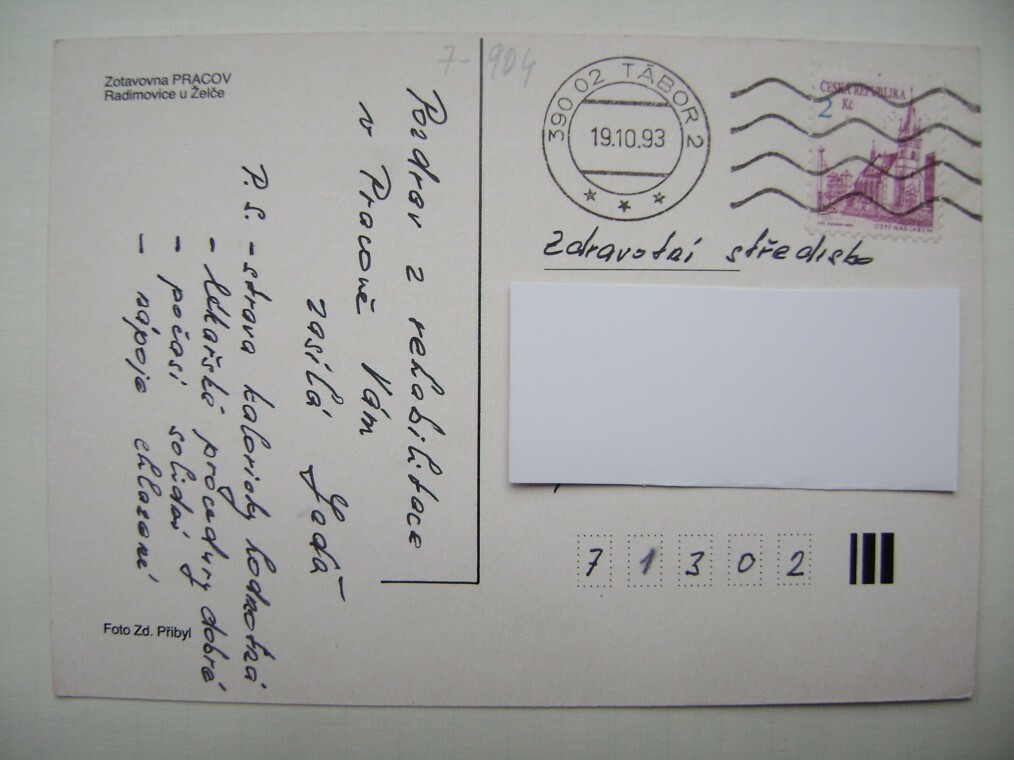 7-904
Zotavovna PRACOV
Radimovice u Želče
Pozdrav z rehabilitace
v Pracově Vám
zasílá Laďa
P.S. - strava kaloricky hodnotná
- lékařské procedury dobré
- počasí solidní
- nápoje chlazené
Foto Zd. Přibyl
390 02 TÁBOR 2
19.10.93
ČESKÁ REPUBLIKA
2 Kč
ÚSTÍ NAD LABEM
Zdravotní středisko
71302